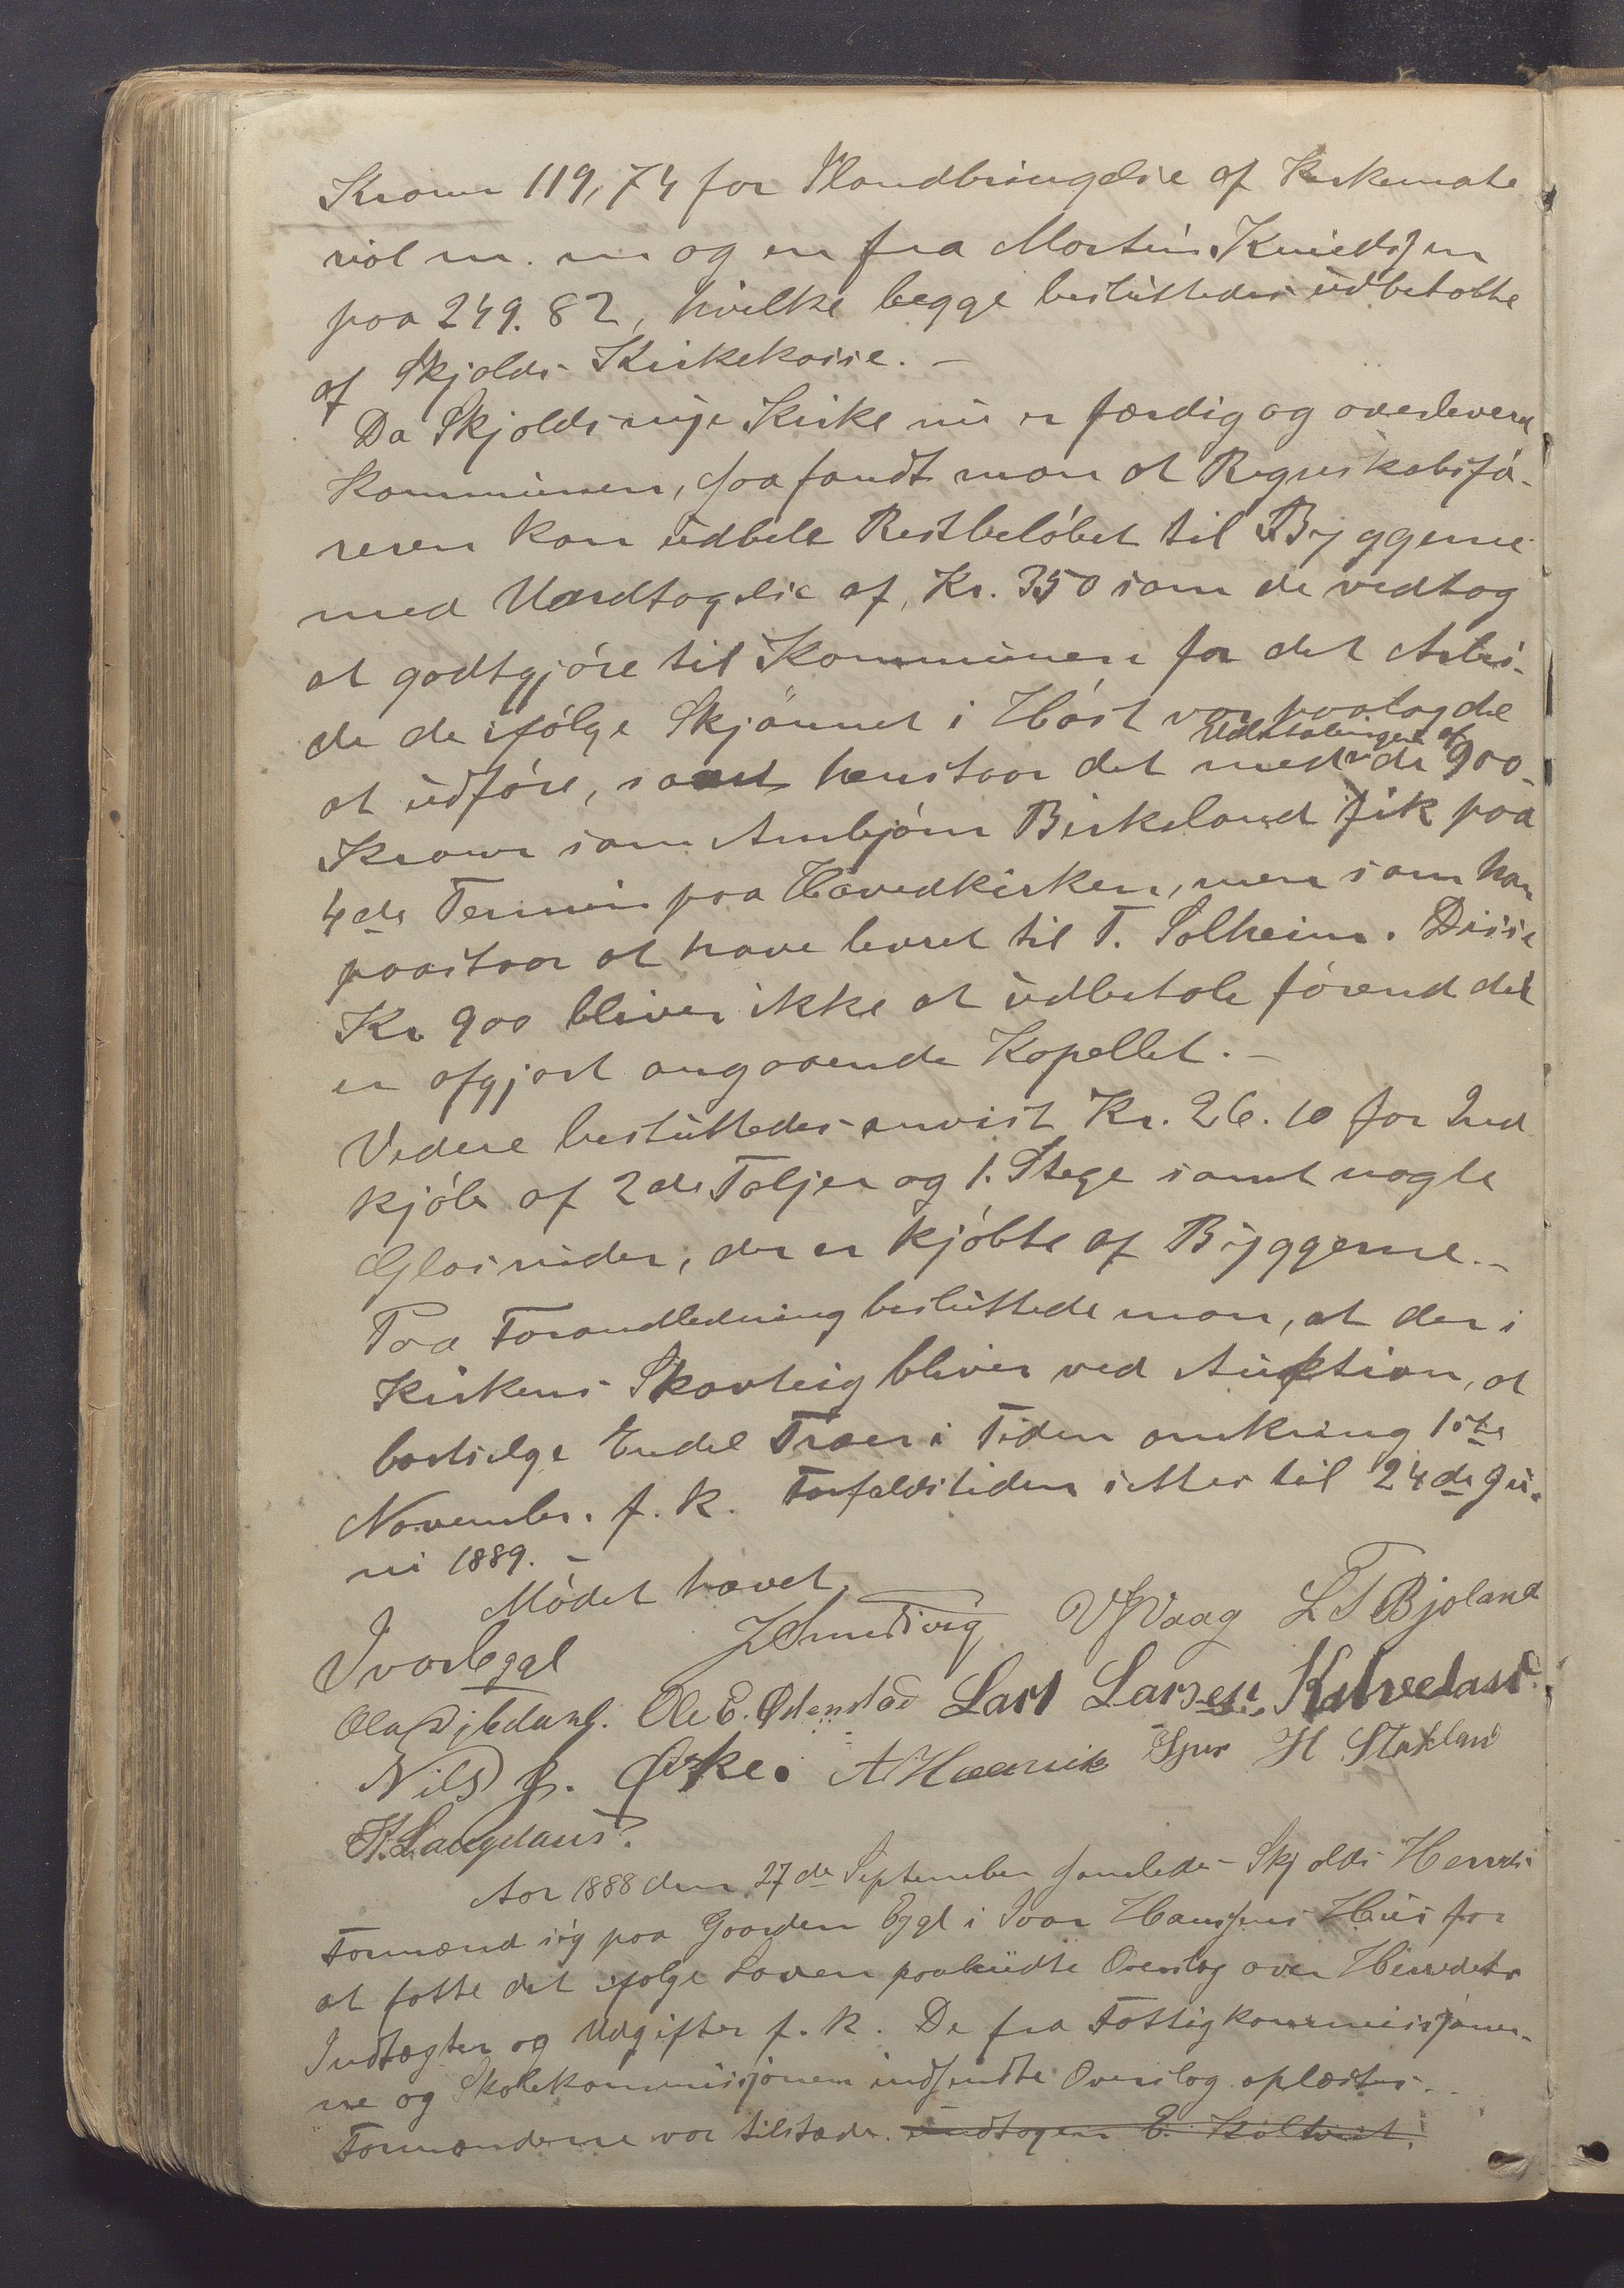 Kroner 119,74 for Ilandbringelse af Kirkemate
rial m. m og en fra Mortin Knudsen
paa 249.82, hvilke begge besluttedes udbetalte
af Skjolds Kirkekasse. –
Da Skjolds nye Kirke nu er færdig og overlevert
Kommunen, saa fandt man at Regnskabsfø-
reren kan udbetale Restbeløbet til Byggerne
med Undtagelse af, Kr. 350 som de vedtog
at godtgjøre til Kommunen for det Arbei-
de de ifølge Skjønnet i Høst var paalagde
at udføre, samt henstaar det med Udbetalingen af de 900-
Kroner som Arnbjørn Birkeland fik paa
4de Termin paa Hovedkirken, men som han
paastaar at have levert til T. Solheim. Disse
Kr 900 bliver ikke at udbetale førend det
er afgjort angaaende Kapellet. –
Videre besluttedes anvist Kr. 26.10 for Ind
kjøb af 2de Taljer og 1. Stege samt nogle
Glasruder, der er kjøbte af Byggerne. –
Paa Foranledning besluttede man, at der i
Kirkens Skovteig bliver ved Auktion, at
bortsælge Endel Træer i Tiden omkring 1ste
November. f. k. Forfaldstiden settes til 24de Ju-
ni 1889. –
Mødet hævet.
Ivar Egge ZSmedsvig VVaag L T Bjoland
Ola Ole E. Østenstad Lars Larsen Kalveland
Nils G. Øvke. A Haavik Sjur H Stakland
K. Langeland.
Aar 1888 den 27de September samledes Skjolds Herreds
Formænd sig paa Gaarden Egge i Ivar Hansens Hus for
at fatte det ifølge Loven paabudte Overslag over Herredets
Indtægter og Udgifter f. k. De fra Fattigkommissjoner-
ne og Skolekommissjonen indsendte Overslag oplæstes. –
Formænderne var tilstæde. undtagen E.